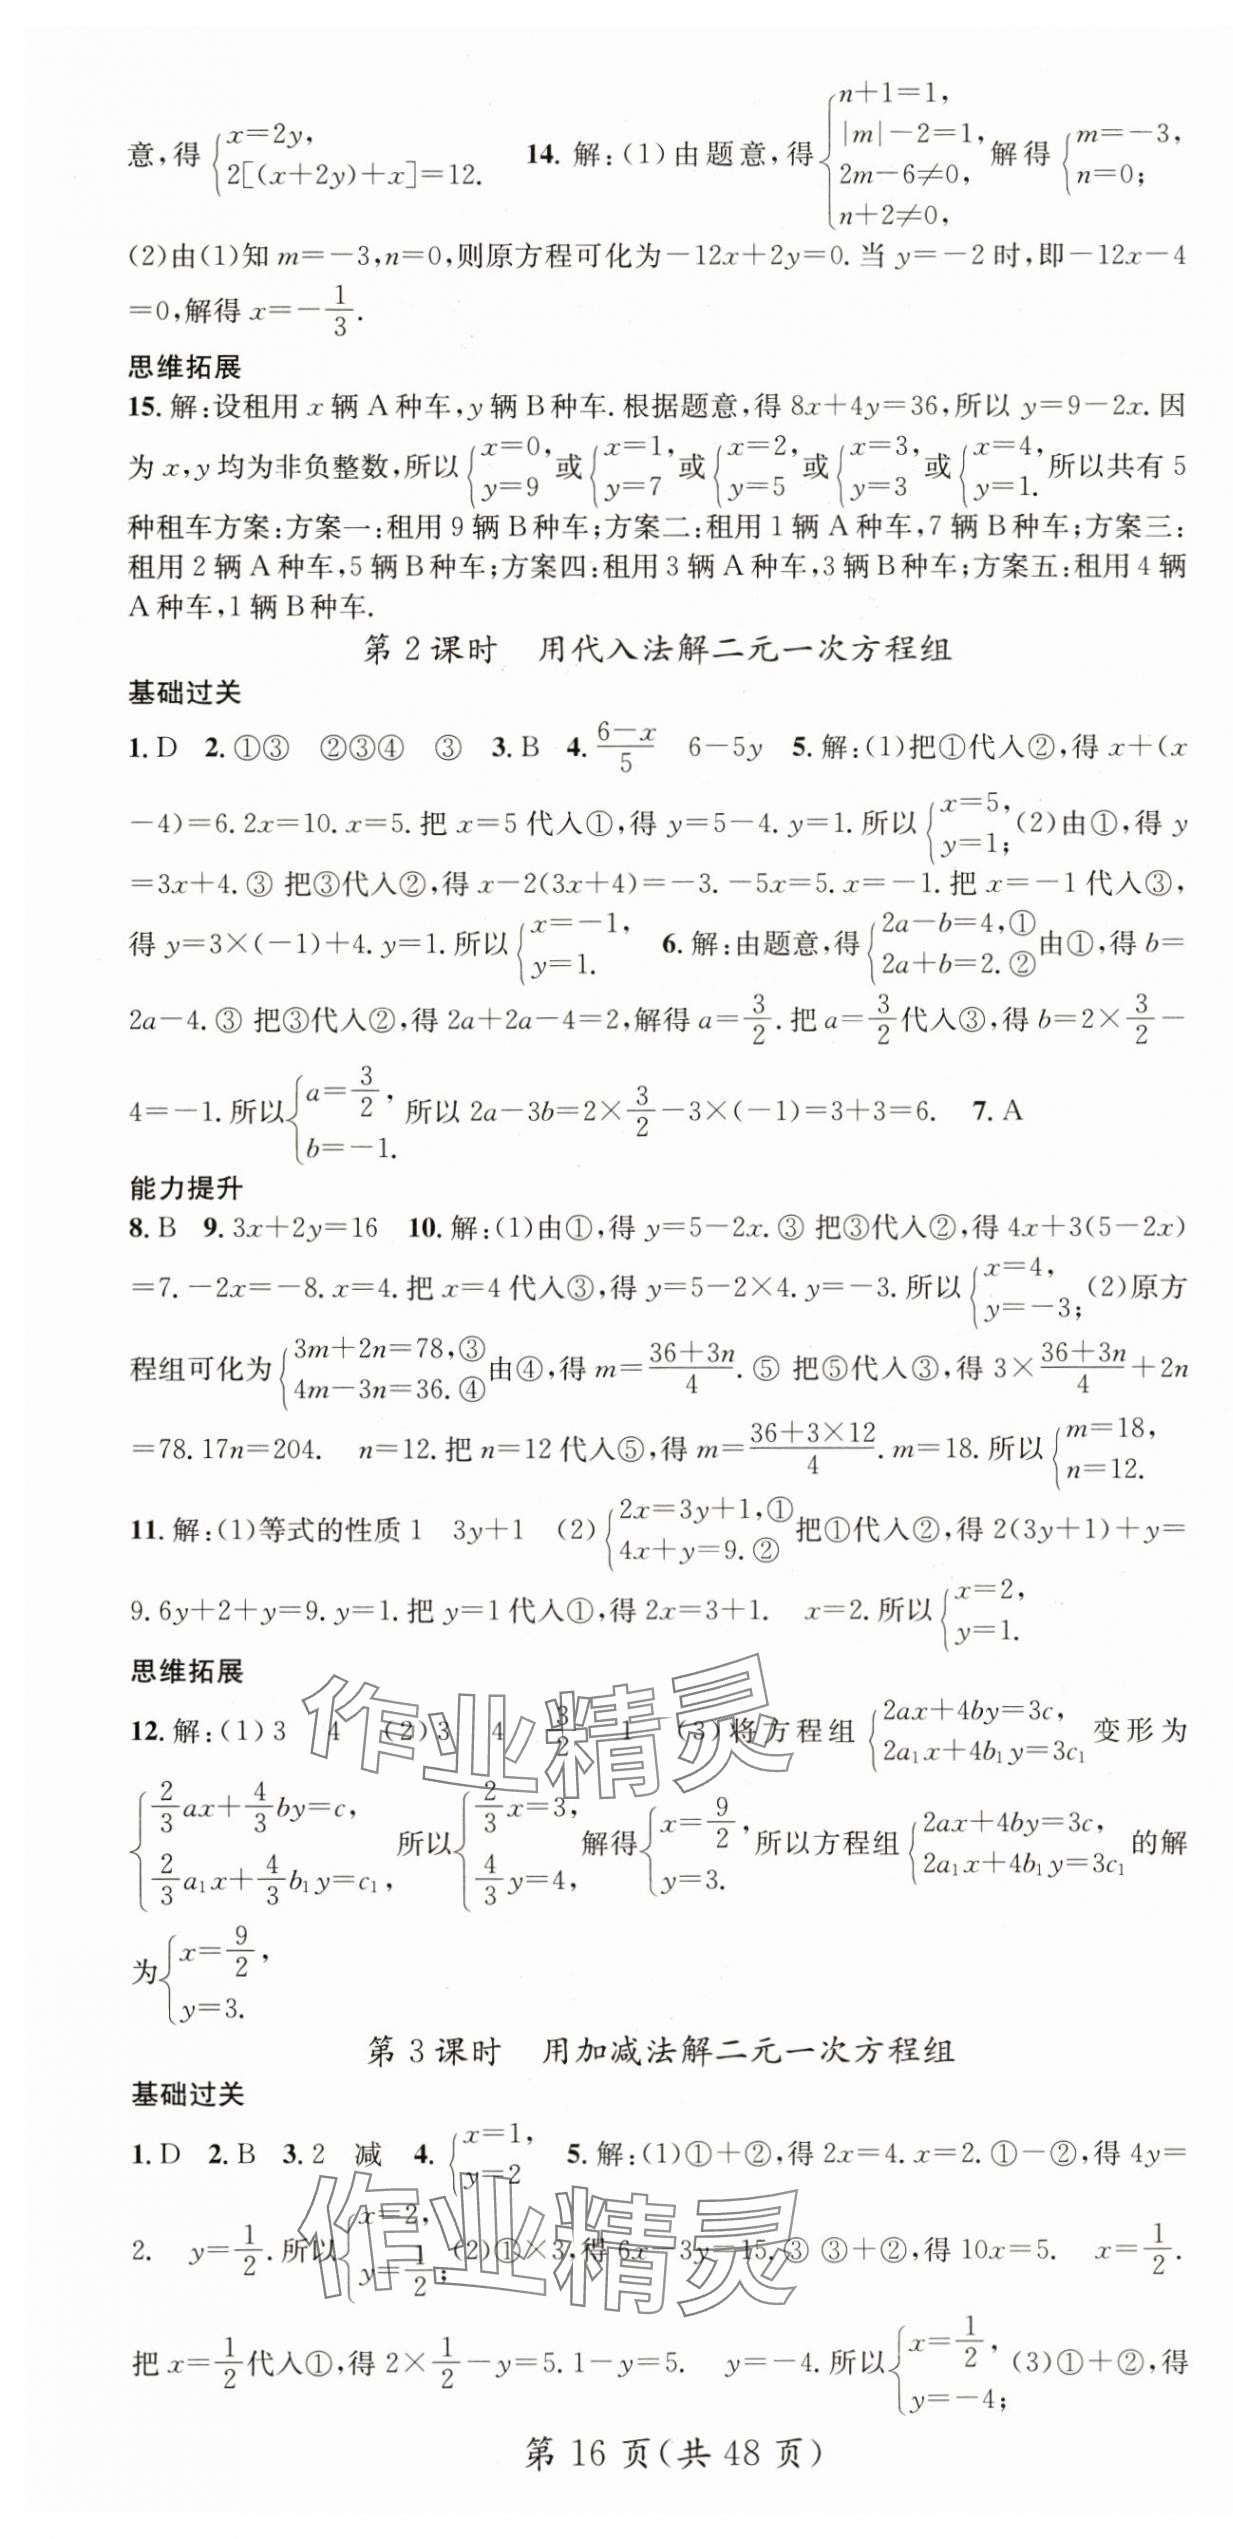 意,得{x=2y, 2[(x+2y)+x]=12. 14. 解:(1)由题意,得{n+1=1, |m|-2=1, 2m-6≠0, n+2≠0, 解得{m=-3, n=0;
(2)由(1)知 m=-3,n=0,则原方程可化为-12x+2y=0. 当 y=-2 时,即-12x-4
=0,解得 x=-1/3.
思维拓展
15. 解:设租用 x 辆 A 种车,y 辆 B 种车. 根据题意,得 8x+4y=36,所以 y=9-2x. 因
为 x,y 均为非负整数,所以{x=0, y=9 或{x=1, y=7 或{x=2, y=5 或{x=3, y=3 或{x=4, y=1. 所以共有 5
种租车方案:方案一:租用 9 辆 B 种车;方案二:租用 1 辆 A 种车,7 辆 B 种车;方案三:
租用 2 辆 A 种车,5 辆 B 种车;方案四:租用 3 辆 A 种车,3 辆 B 种车;方案五:租用 4 辆
A 种车,1 辆 B 种车.
第 2 课时 用代入法解二元一次方程组
基础过关
1. D 2. ①③ ②③④ ③ 3. B 4. (6-x)/5 6-5y 5. 解:(1)把①代入②,得 x+(x
-4)=6. 2x=10. x=5. 把 x=5 代入①,得 y=5-4. y=1. 所以{x=5, y=1; (2)由①,得 y
=3x+4. ③ 把③代入②,得 x-2(3x+4)=-3. -5x=5. x=-1. 把 x=-1 代入③,
得 y=3×(-1)+4. y=1. 所以{x=-1, y=1. 6. 解:由题意,得{2a-b=4,① 2a+b=2. ② 由①,得 b=
2a-4. ③ 把③代入②,得 2a+2a-4=2,解得 a=3/2. 把 a=3/2 代入③,得 b=2×3/2-
4=-1. 所以{a=3/2, b=-1. 所以 2a-3b=2×3/2-3×(-1)=3+3=6. 7. A
能力提升
8. B 9. 3x+2y=16 10. 解:(1)由①,得 y=5-2x. ③ 把③代入②,得 4x+3(5-2x)
=7. -2x=-8. x=4. 把 x=4 代入③,得 y=5-2×4. y=-3. 所以{x=4, y=-3; (2)原方
程组可化为{3m+2n=78,③ 4m-3n=36. ④ 由④,得 m=(36+3n)/4. ⑤ 把⑤代入③,得 3×(36+3n)/4+2n
=78. 17n=204. n=12. 把 n=12 代入⑤,得 m=(36+3×12)/4. m=18. 所以{m=18, n=12.
11. 解:(1)等式的性质 1 3y+1 (2){2x=3y+1,① 4x+y=9. ② 把①代入②,得 2(3y+1)+y=
9. 6y+2+y=9. y=1. 把 y=1 代入①,得 2x=3+1. x=2. 所以{x=2, y=1.
思维拓展
12. 解:(1)3 4 (2)3 4 3/2 1 (3)将方程组{2ax+4by=3c, 2a₁x+4b₁y=3c₁ 变形为
{2/3ax+4/3by=c, 2/3a₁x+4/3b₁y=c₁, 所以{2/3x=3, 4/3y=4, 解得{x=9/2, y=3. 所以方程组{2ax+4by=3c, 2a₁x+4b₁y=3c₁ 的解
为{x=9/2, y=3.
第 3 课时 用加减法解二元一次方程组
基础过关
1. D 2. B 3. 2 减 4. {x=1, y=2 5. 解:(1)①+②,得 2x=4. x=2. ①-②,得 4y=
2. y=1/2. 所以{x=2, y=1/2; (2)①×3,得 6x-3y=15. ③ ③+②,得 10x=5. x=1/2.
把 x=1/2 代入①,得 2×1/2-y=5. 1-y=5. y=-4. 所以{x=1/2, y=-4; (3)①+②,得
第 16 页(共 48 页)
作业精灵
作业精灵